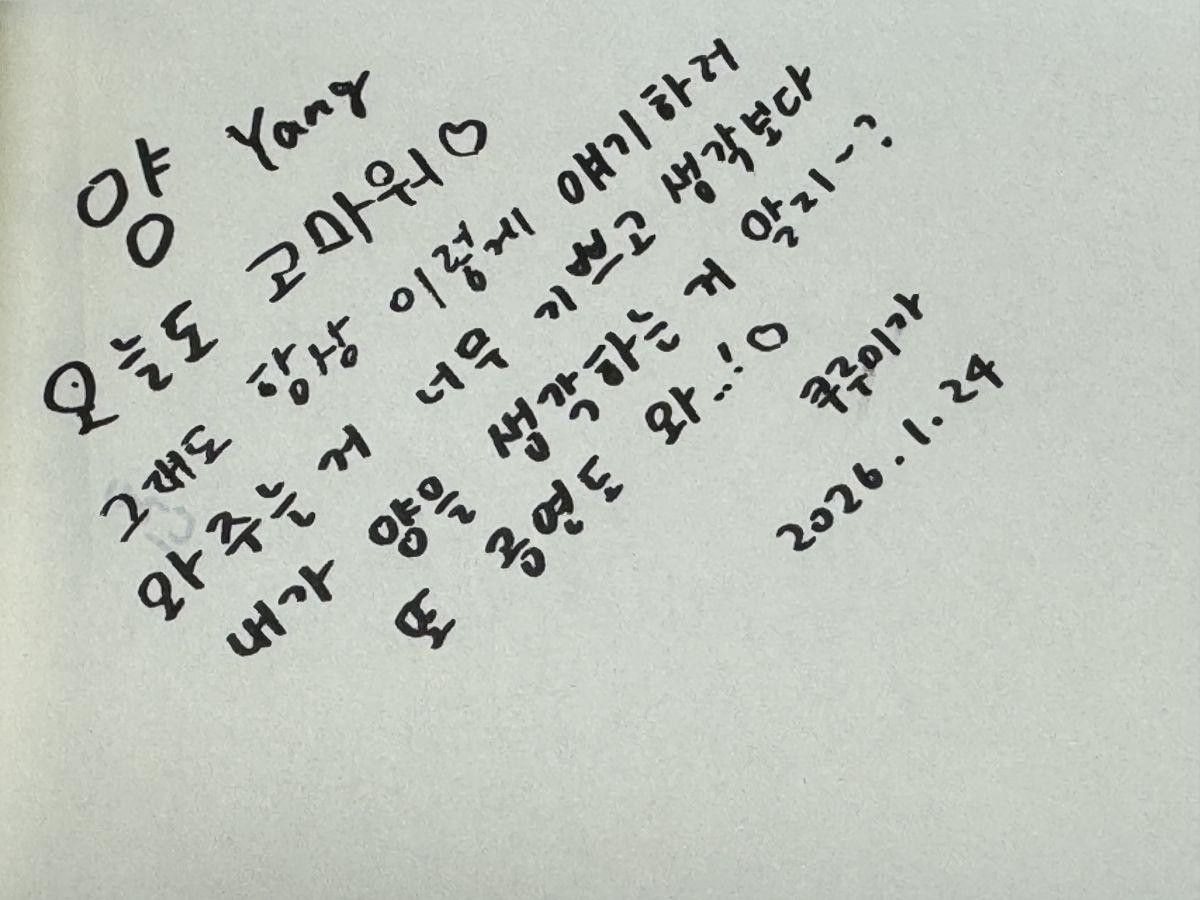 양 Yang
오늘도 고마워♡
그래도 항상 이렇게 얘기하러
와주는 게 너무 기쁘고 생각보다
내가 양을 생각하는 게 알지~?
또 공연도 와..!♡
쿠루미가
2026.1.24